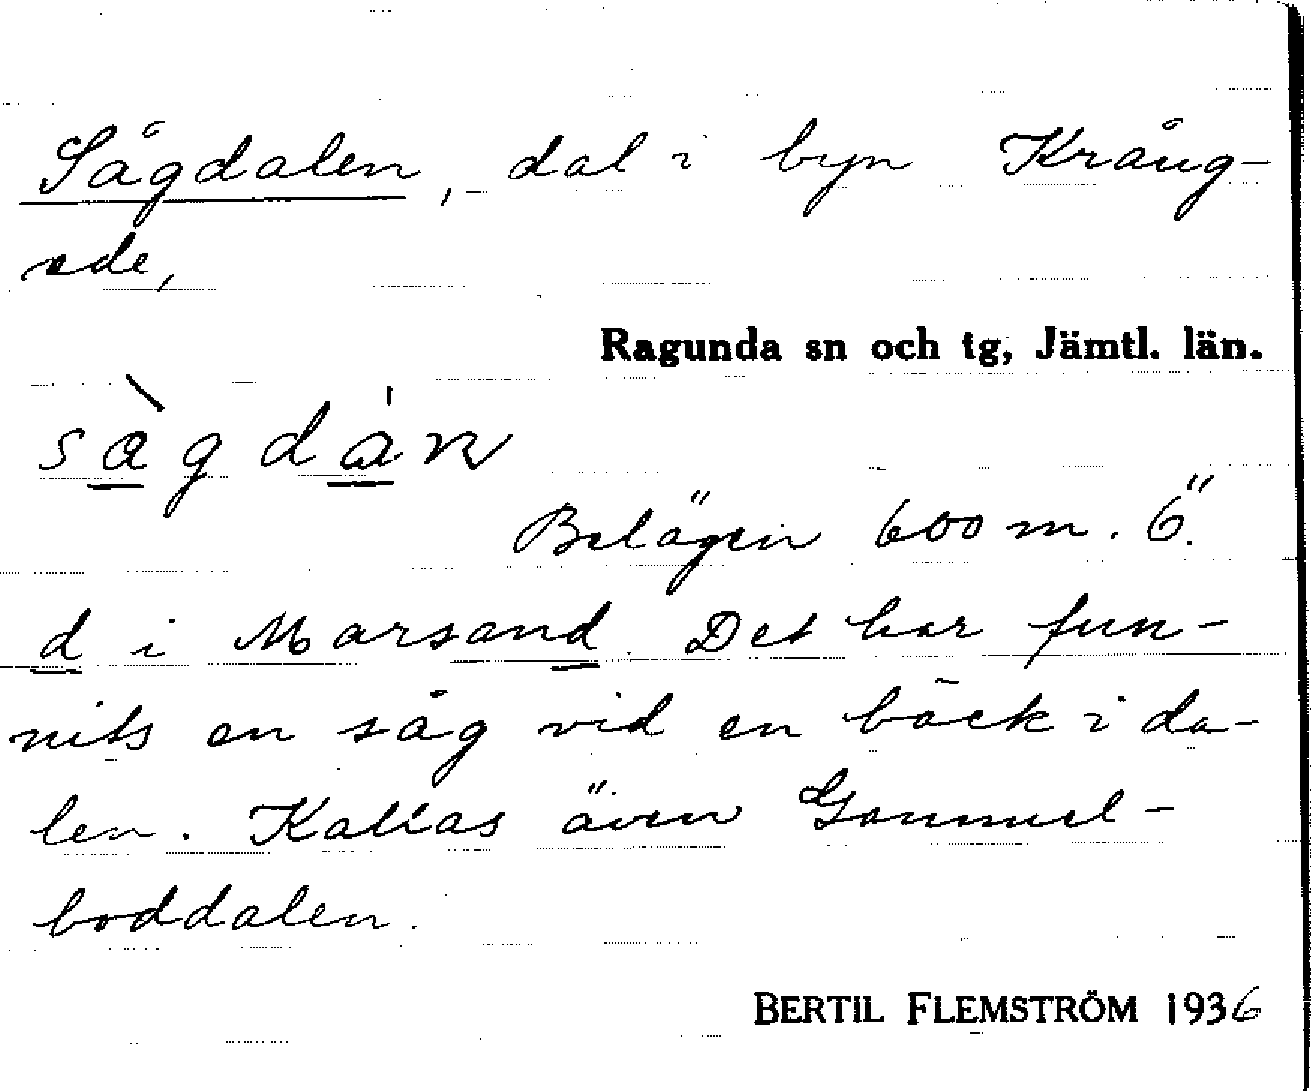 Sågdalen, dal i byn Kräng-
ede,
Ragunda sn och tg, Jämtl. län.
sàgdán
Belägen 600 m. ö.
d i Marsand. Det har fun-
nits en såg vid en bäck i da-
len. Kallas även Gammel-
boddalen.
BERTIL FLEMSTRÖM 1936